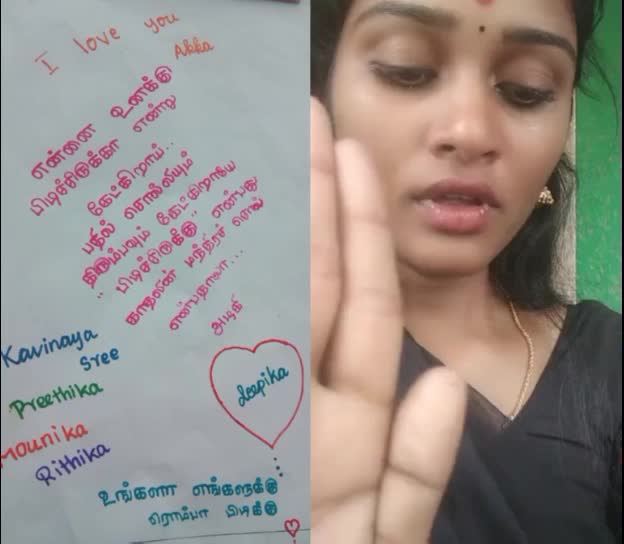 I love you
Akka
என்னை உனக்கு
பிடிச்சிருக்கா என்று
கேட்கிறாய்..
பதில் சொல்லியும்
திரும்பவும் கேட்கிறாயே
"பிடிச்சிருக்கு" என்பது
காதலின் மந்திரச் சொல்
என்பதாலா...
Kavinaya
Sree
Preethika
Mounika
Rithika
deepika
உங்கள எங்களுக்கு
ரொம்பா பிடிக்கு